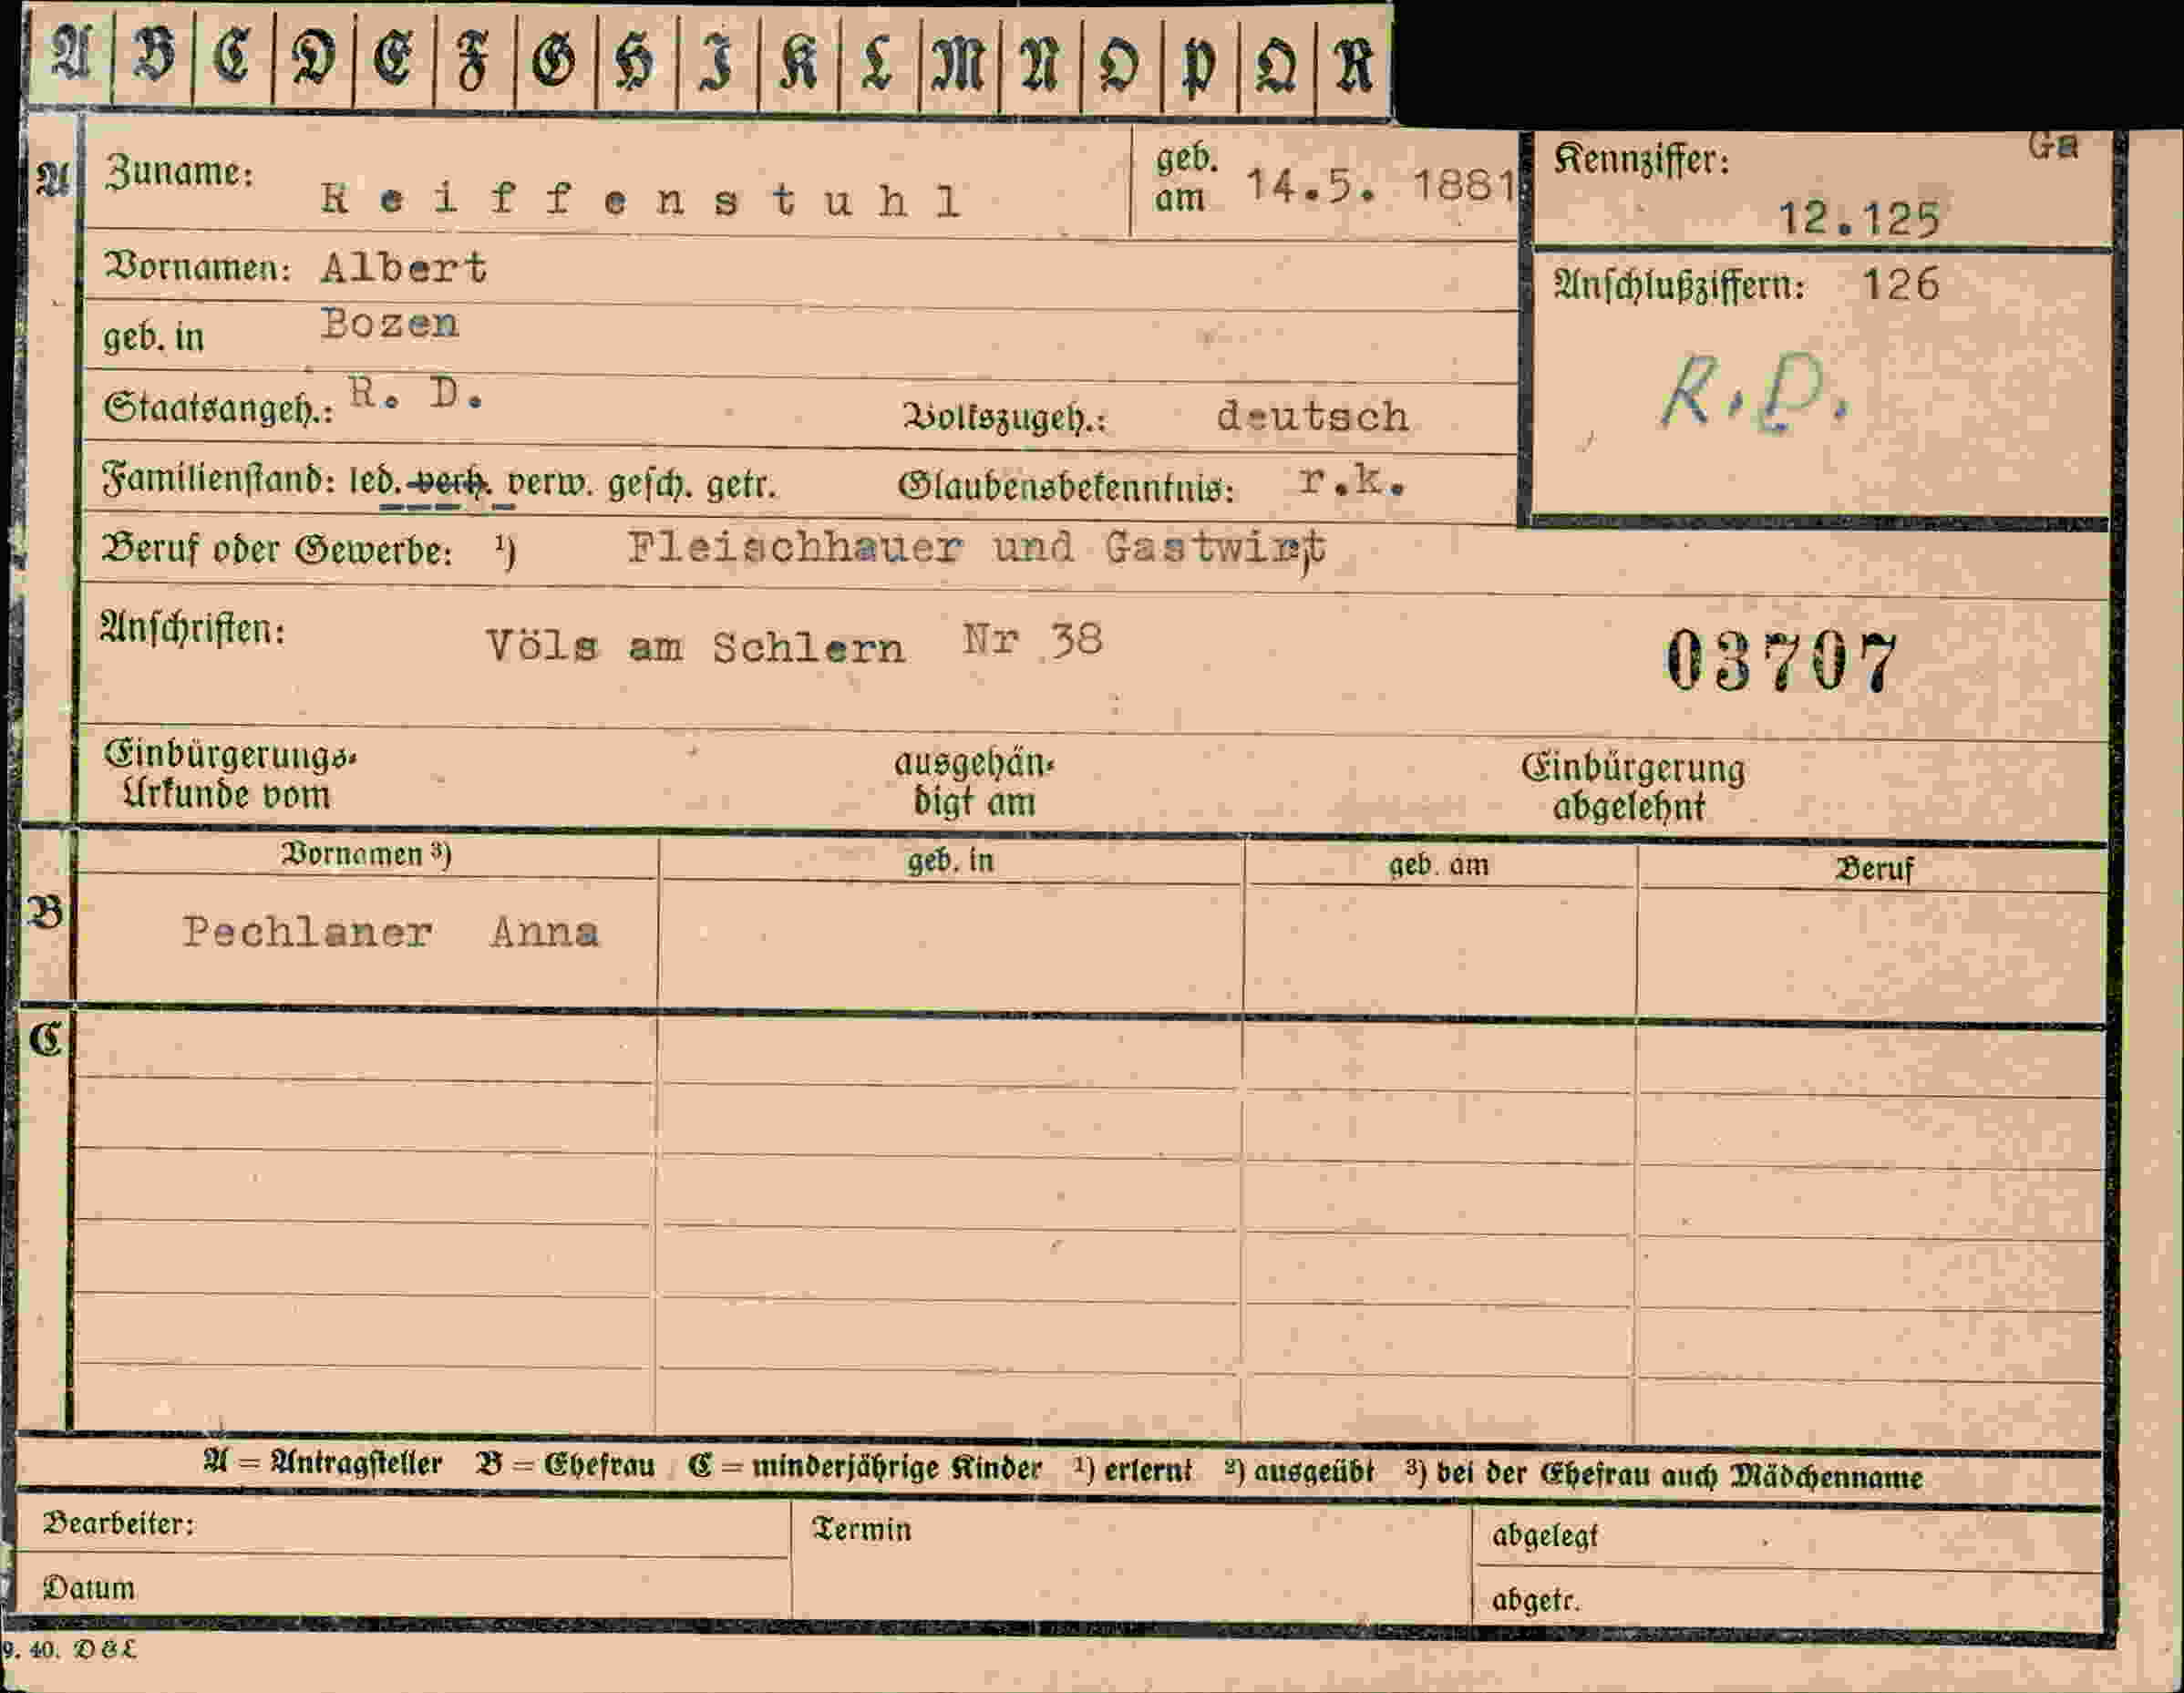 A B C D E F G H I K L M N O P Q R
A Zuname: Reiffenstuhl geb. am 14.5. 1881 Kennziffer: Ga 12.125
Vornamen: Albert Anschlußziffern: 126
geb. in Bozen
R.D.
Staatsangeh.: R. D. Volkszugeh.: deutsch
Familienstand: led. verh. verw. gesch. getr. Glaubensbekenntnis: r.k.
Beruf oder Gewerbe: ¹) Fleischhauer und Gastwirt
Anschriften: Völs am Schlern Nr 38 03707
Einbürgerungs- ausgehän- Einbürgerung
Urkunde vom digt am abgelehnt
Vornamen ³) geb. in geb. am Beruf
B Pechlaner Anna
C
A = Antragsteller B = Ehefrau C = minderjährige Kinder ¹) erlernt ²) ausgeübt ³) bei der Ehefrau auch Mädchenname
Bearbeiter: Termin abgelegt
Datum abgetr.
9. 40.